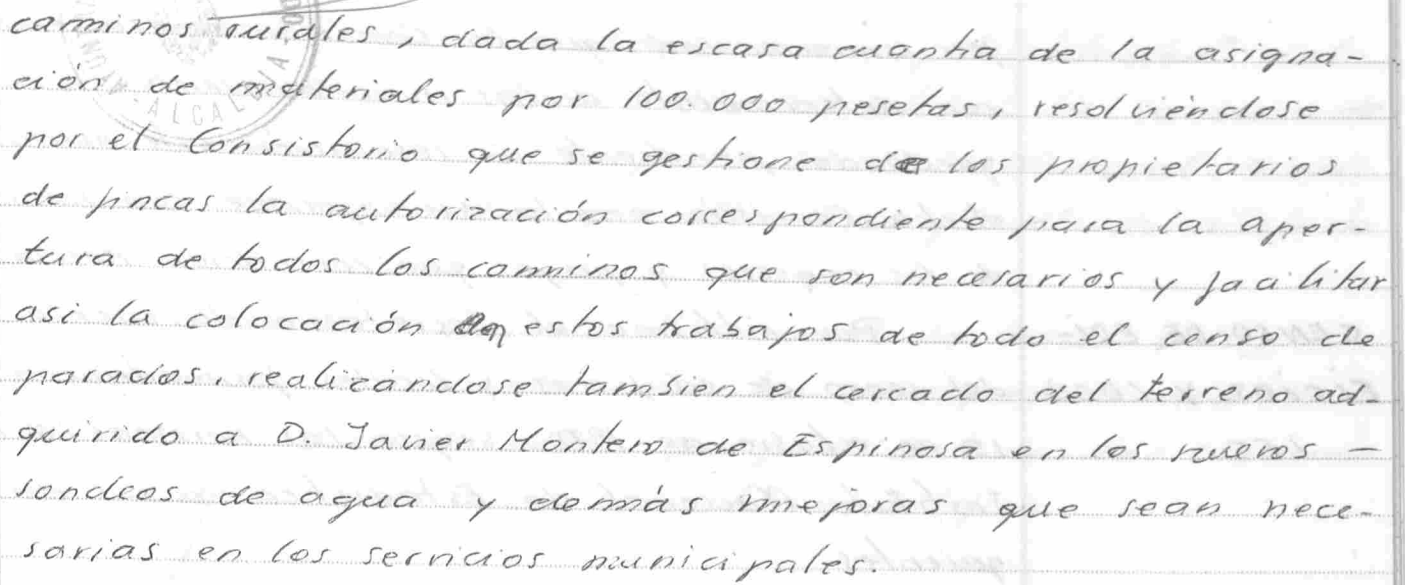 caminos rurales, dada la escasa cuantia de la asigna-
ción de materiales por 100.000 pesetas, resolviéndose
por el Consistorio que se gestione de los propietarios
de fincas la autorización correspondiente para la aper-
tura de todos los caminos que son necesarios y facilitar
asi la colocación en estos trabajos de todo el censo de
parados, realizándose tambien el cercado del terreno ad-
quirido a D. Javier Montero de Espinosa en los nuevos -
sondeos de agua y demás mejoras que sean nece-
sarias en los servicios municipales.
ALCALDIA